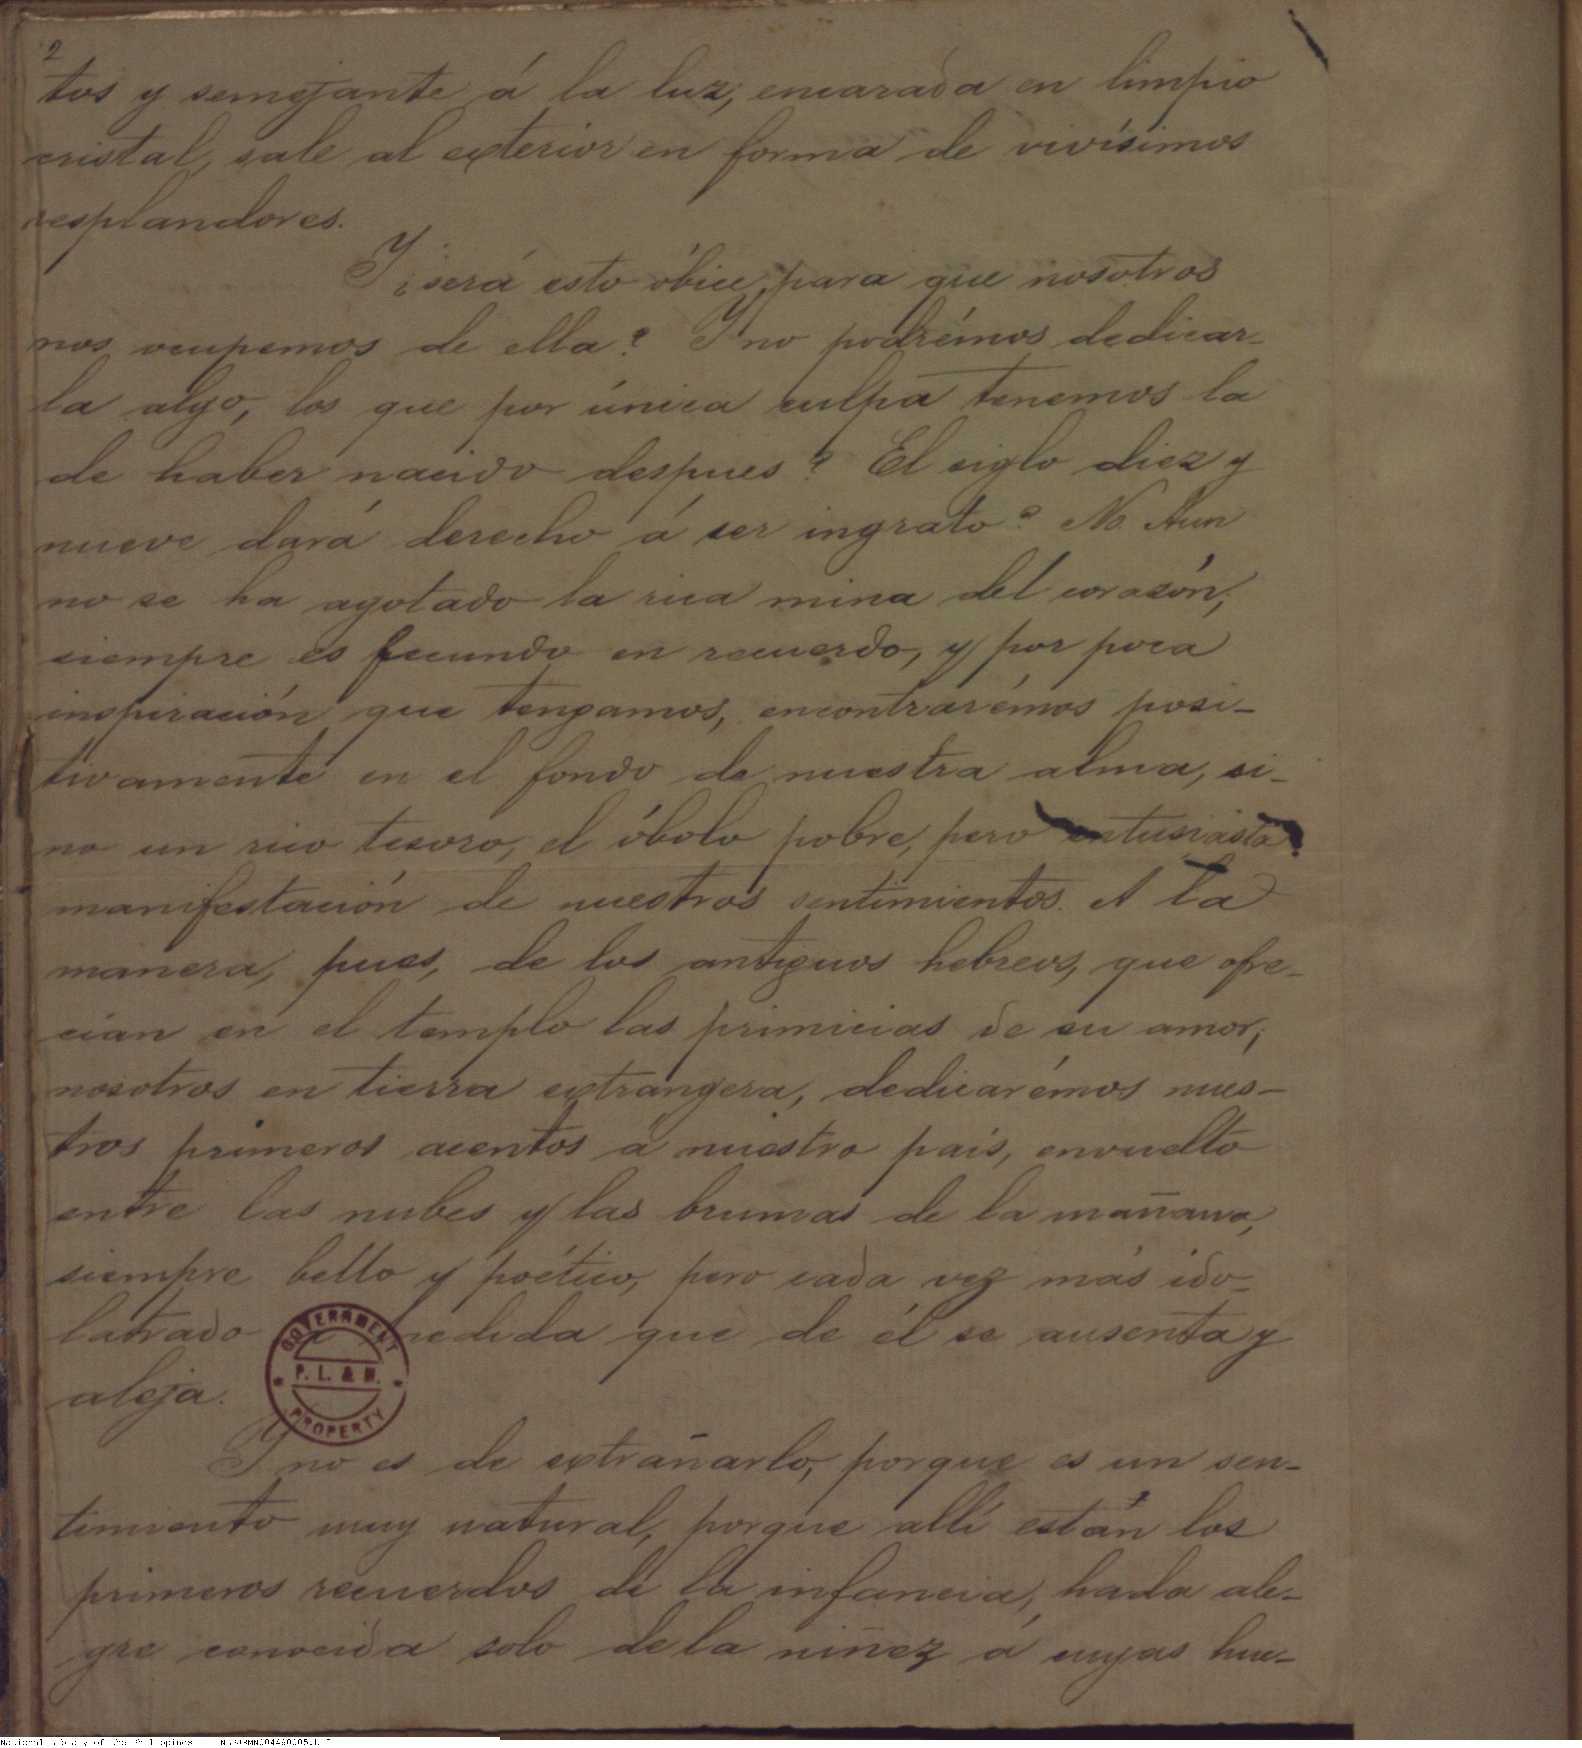 2
tos y semejante á la luz, encarada en limpio
cristal, sale al exterior en forma de vivísimos
resplandores.
Y ¿será esto óbice, para que nosotros
nos ocupemos de ella? Y no podrémos dedicar-
la algo, los que por única culpa tenemos la
de haber nacido despues? El siglo diez y
nueve dará derecho á ser ingrato? No. Aun
no se ha agotado la rica mina del corazón,
siempre es fecundo en recuerdo, y por poca
inspiración que tengamos, encontrarémos posi-
tivamente en el fondo de nuestra alma, si-
no un rico tesoro, el óbolo pobre, pero entusiasta
manifestación de nuestros sentimientos. A la
manera, pues, de los antiguos hebreos, que ofre-
cian en el templo las primicias de su amor,
nosotros en tierra extrangera, dedicarémos nues-
tros primeros acentos á nuestro pais, envuelto
entre las nubes y las brumas de la mañana,
siempre bello y poético, pero cada vez más ido-
latrado medida que de él se ausenta y
aleja.
GOVERNMENT
P. L. & M.
PROPERTY
Y no es de extrañarlo, porque es un sen-
timiento muy natural, porque allí están los
primeros recuerdos de la infancia, hada ale-
gre conocida solo de la niñez á cuyas hue-
National Library of the Philippines